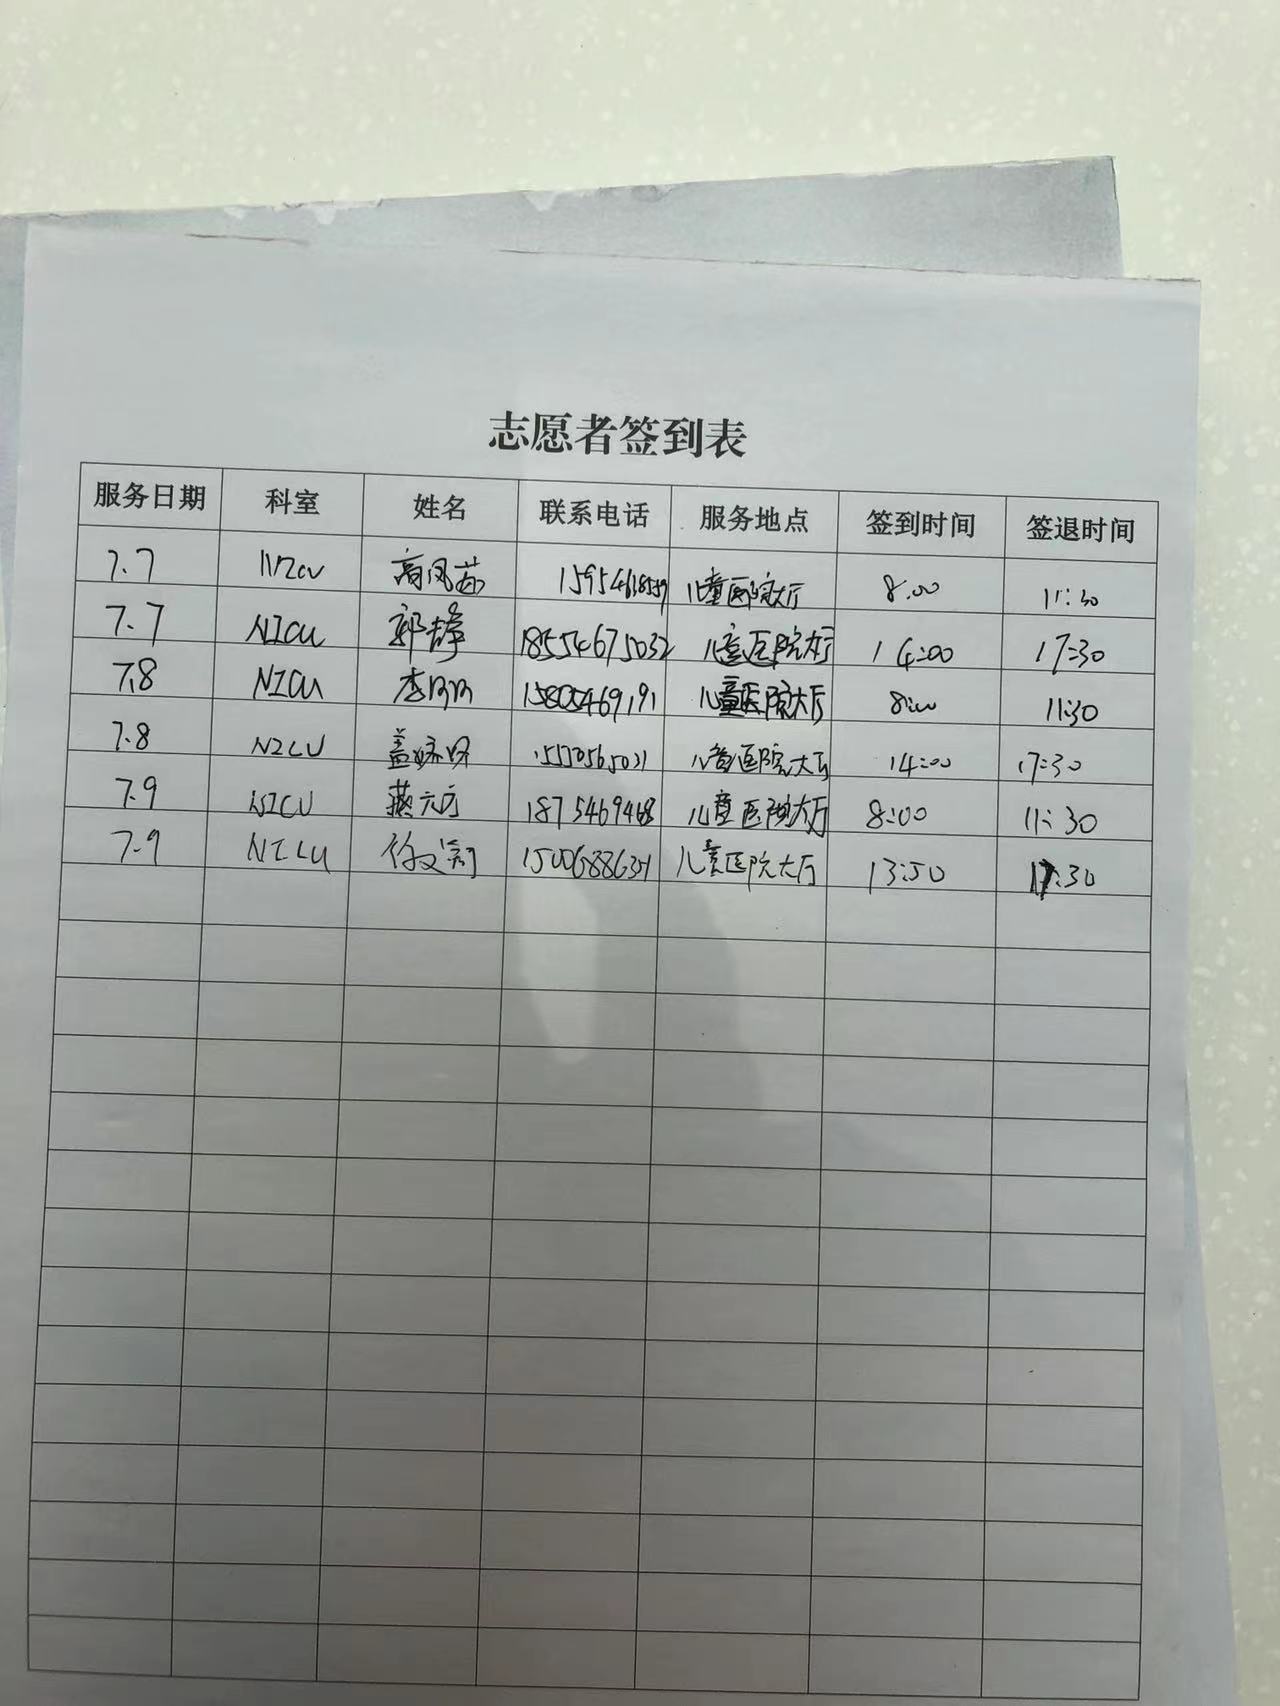 志愿者签到表
服务日期 科室 姓名 联系电话 服务地点 签到时间 签退时间
7.7 NICU 高凤茹 儿童医院大厅 8:00 11:30
7.7 NICU 郭静 18554675032 儿童医院大厅 14:00 17:30
7.8 NICU 李 15805469191 儿童医院大厅 8:00 11:30
7.8 NICU 盖 儿童医院大厅 14:00 17:30
7.9 NICU 燕 儿童医院大厅 8:00 11:30
7.9 NICU 儿童医院大厅 13:50 17:30